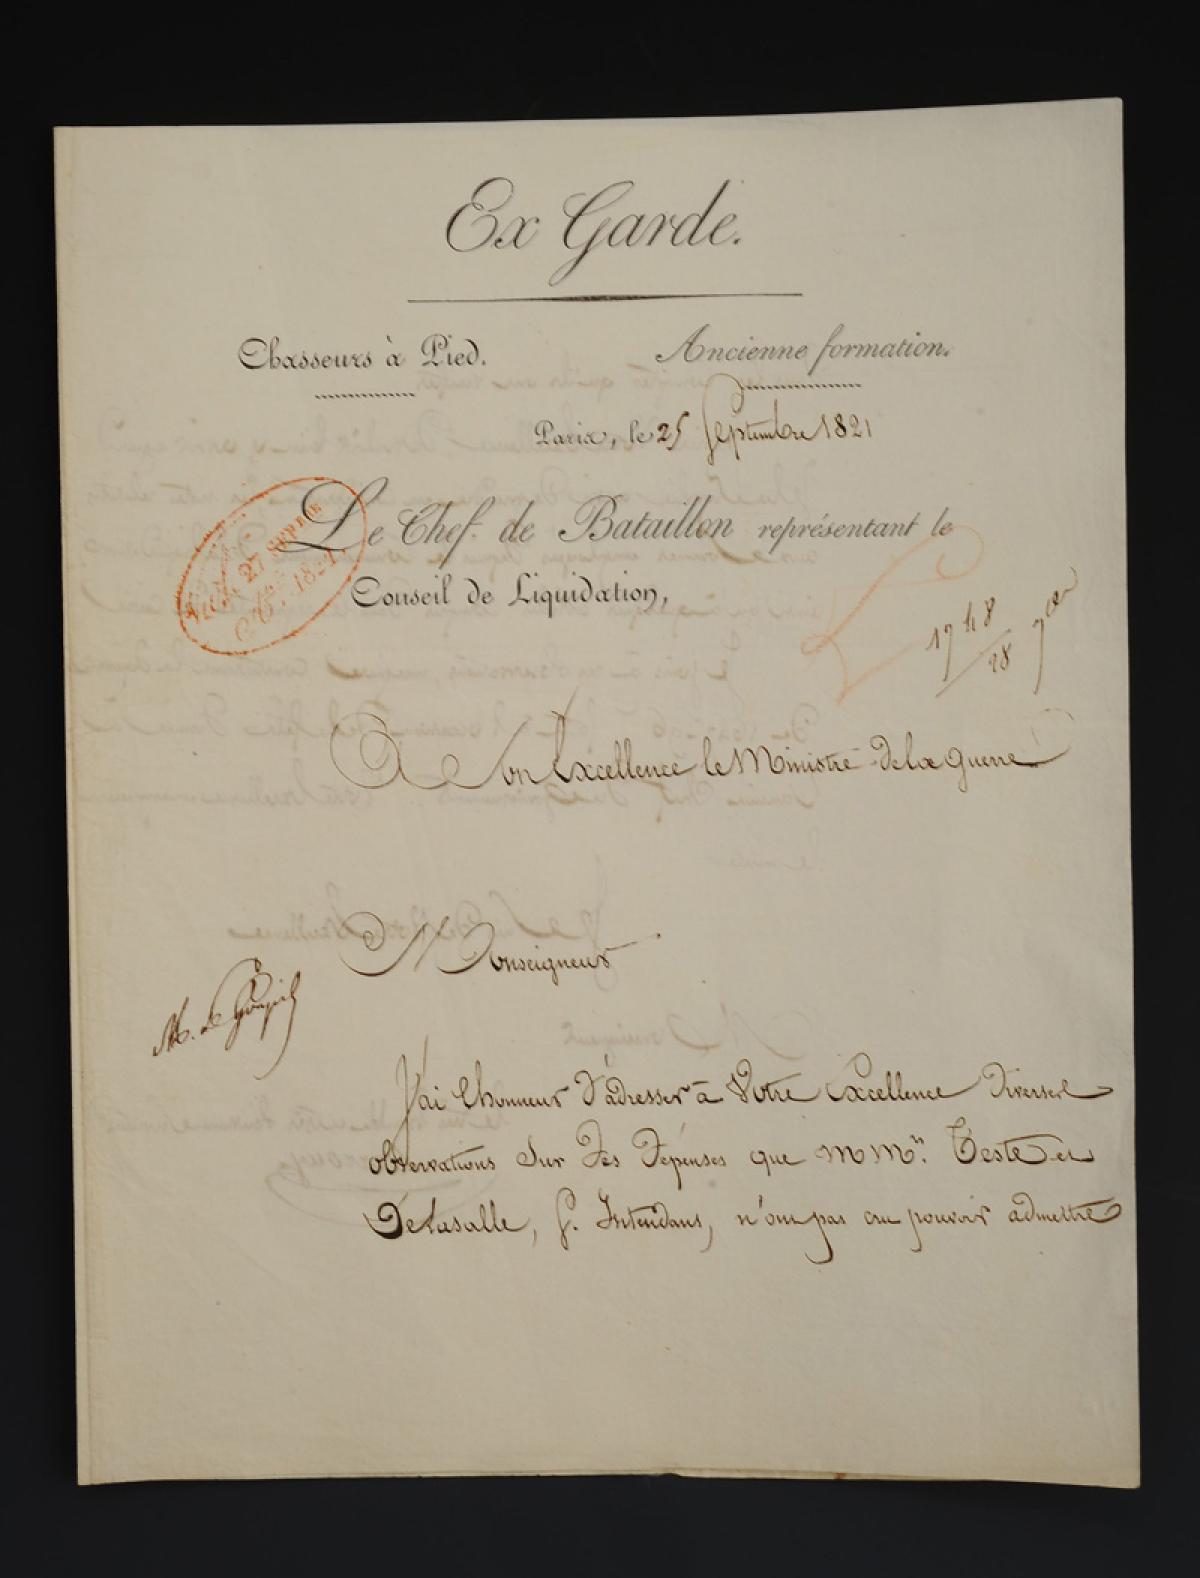 Ex Garde.
Chasseurs à Pied.
Ancienne formation.
Paris, le 25 Septembre 1821
Le Chef de Bataillon représentant le
Conseil de Liquidation,
27
1821
1748
28 7bre
A Son Excellence le Ministre de la Guerre
Monseigneur
M. de
J'ai l'honneur d'adresser à Votre Excellence diverses
observations sur des dépenses que MMrs. Teste et
Delasalle, S. Intendans, n'ont pas cru pouvoir admettre